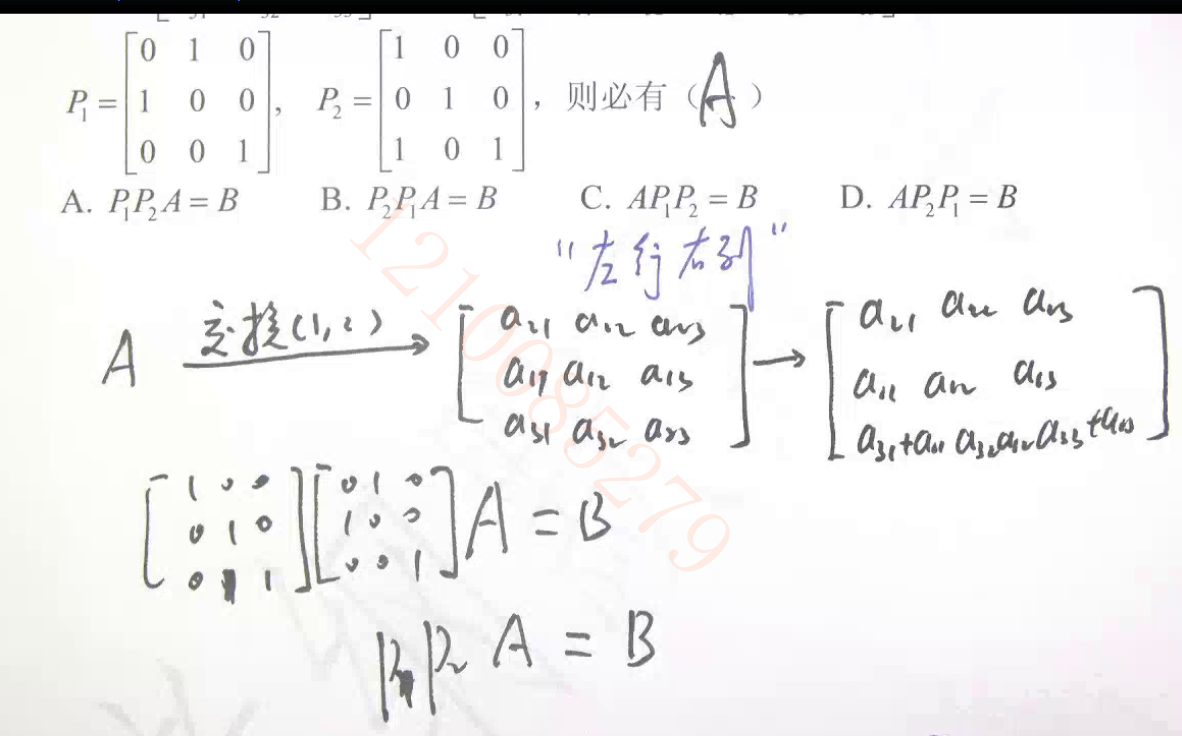 P₁ = [0 1 0; 1 0 0; 0 0 1], P₂ = [1 0 0; 0 1 0; 1 0 1], 则必有 (A)
A. P₁P₂A = B B. P₂P₁A = B C. AP₁P₂ = B D. AP₂P₁ = B
"左行右列"
A 交换(1,2) → [a₂₁ a₁₂ a₂₃; a₁₁ a₁₂ a₁₃; a₃₁ a₃₂ a₃₃] → [a₂₁ a₂₂ a₂₃; a₁₁ a₁₂ a₁₃; a₃₁+a₁₁ a₃₂a₁₂ a₃₃+a₁₃]
[1 0 0; 0 1 0; 0 1] [0 1 0; 1 0 0; 0 0 1] A = B
P₁P₂ A = B
1210085279